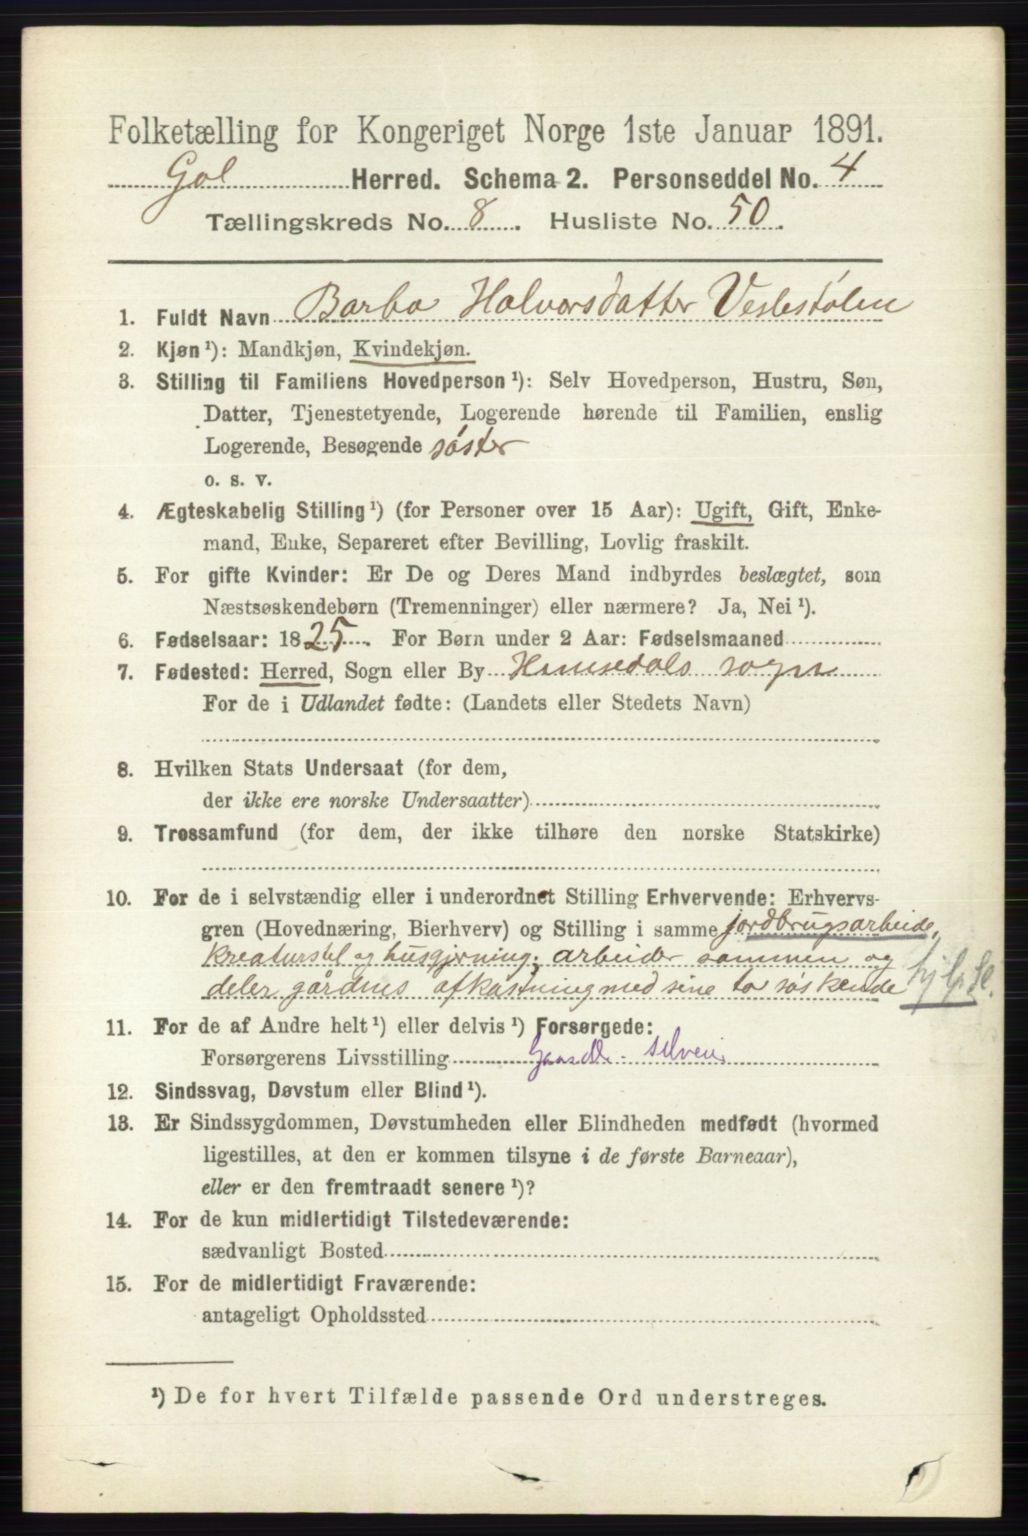 Folketælling for Kongeriget Norge 1ste Januar 1891.
Gol Herred. Schema 2. Personseddel No. 4
Tællingskreds No. 8. Husliste No. 50.
1. Fuldt Navn Barbo Halvorsdatter Veslestølen
2. Kjøn ¹): Mandkjøn, Kvindekjøn.
3. Stilling til Familiens Hovedperson ¹): Selv Hovedperson, Hustru, Søn,
Datter, Tjenestetyende, Logerende hørende til Familien, enslig
Logerende, Besøgende søster
o. s. v.
4. Ægteskabelig Stilling ¹) (for Personer over 15 Aar): Ugift, Gift, Enke-
mand, Enke, Separeret efter Bevilling, Lovlig fraskilt.
5. For gifte Kvinder: Er De og Deres Mand indbyrdes beslægtet, som
Næstsøskendebørn (Tremenninger) eller nærmere? Ja, Nei ¹).
6. Fødselsaar: 1825. For Børn under 2 Aar: Fødselsmaaned
7. Fødested: Herred, Sogn eller By Hemsedals sogn
For de i Udlandet fødte: (Landets eller Stedets Navn)
8. Hvilken Stats Undersaat (for dem,
der ikke ere norske Undersaatter)
9. Trossamfund (for dem, der ikke tilhøre den norske Statskirke)
10. For de i selvstændig eller i underordnet Stilling Erhvervende: Erhvervs-
gren (Hovednæring, Bierhverv) og Stilling i samme jordbrugsarbeide,
kreaturstel og husgjerning; arbeider sammen og
deler gårdens afkastning med sine to søskende
11. For de af Andre helt ¹) eller delvis ¹) Forsørgede:
Forsørgerens Livsstilling Gaardb. selveier
12. Sindssvag, Døvstum eller Blind ¹).
13. Er Sindssygdommen, Døvstumheden eller Blindheden medfødt (hvormed
ligestilles, at den er kommen tilsyne i de første Barneaar),
eller er den fremtraadt senere ¹)?
14. For de kun midlertidigt Tilstedeværende:
sædvanligt Bosted
15. For de midlertidigt Fraværende:
antageligt Opholdssted
¹) De for hvert Tilfælde passende Ord understreges.